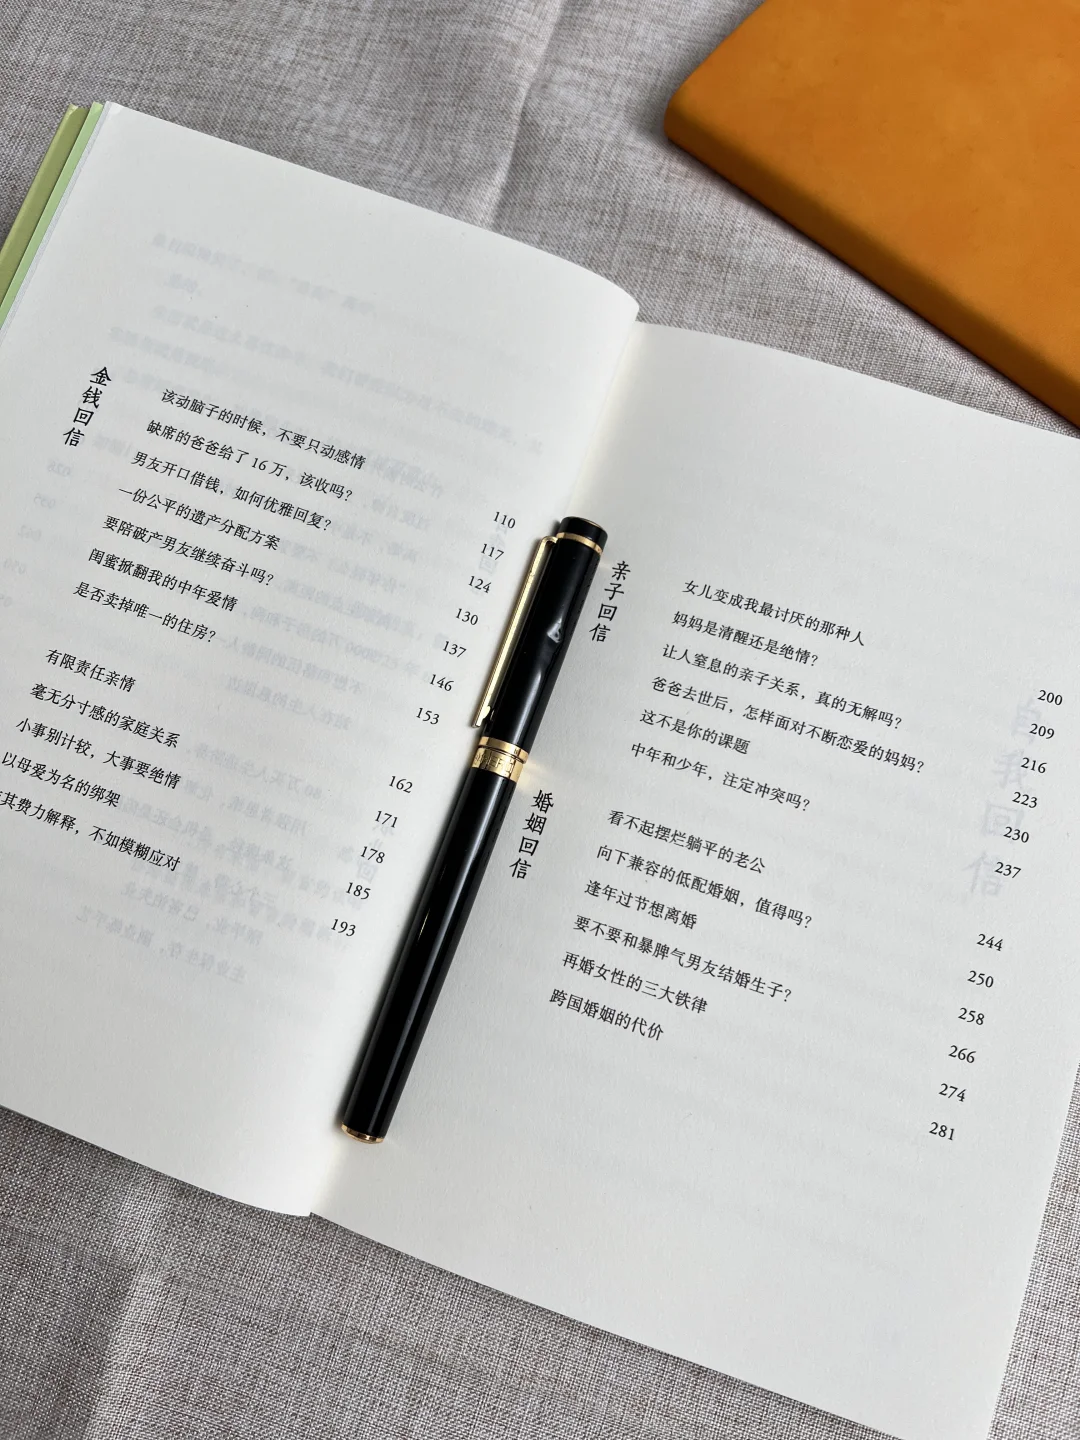 金钱回信
该动脑子的时候，不要只动感情 110
缺席的爸爸给了 16 万，该收吗？ 117
男友开口借钱，如何优雅回复？ 124
一份公平的遗产分配方案 130
要陪破产男友继续奋斗吗？ 137
闺蜜掀翻我的中年爱情 146
是否卖掉唯一的住房？ 153
有限责任亲情 162
毫无分寸感的家庭关系 171
小事别计较，大事要绝情 178
以母爱为名的绑架 185
其费力解释，不如模糊应对 193
亲子回信
女儿变成我最讨厌的那种人 200
妈妈是清醒还是绝情？ 209
让人窒息的亲子关系，真的无解吗？ 216
爸爸去世后，怎样面对不断恋爱的妈妈？ 223
这不是你的课题 230
中年和少年，注定冲突吗？ 237
婚姻回信
看不起摆烂躺平的老公 244
向下兼容的低配婚姻，值得吗？ 250
逢年过节想离婚 258
要不要和暴脾气男友结婚生子？ 266
再婚女性的三大铁律 274
跨国婚姻的代价 281